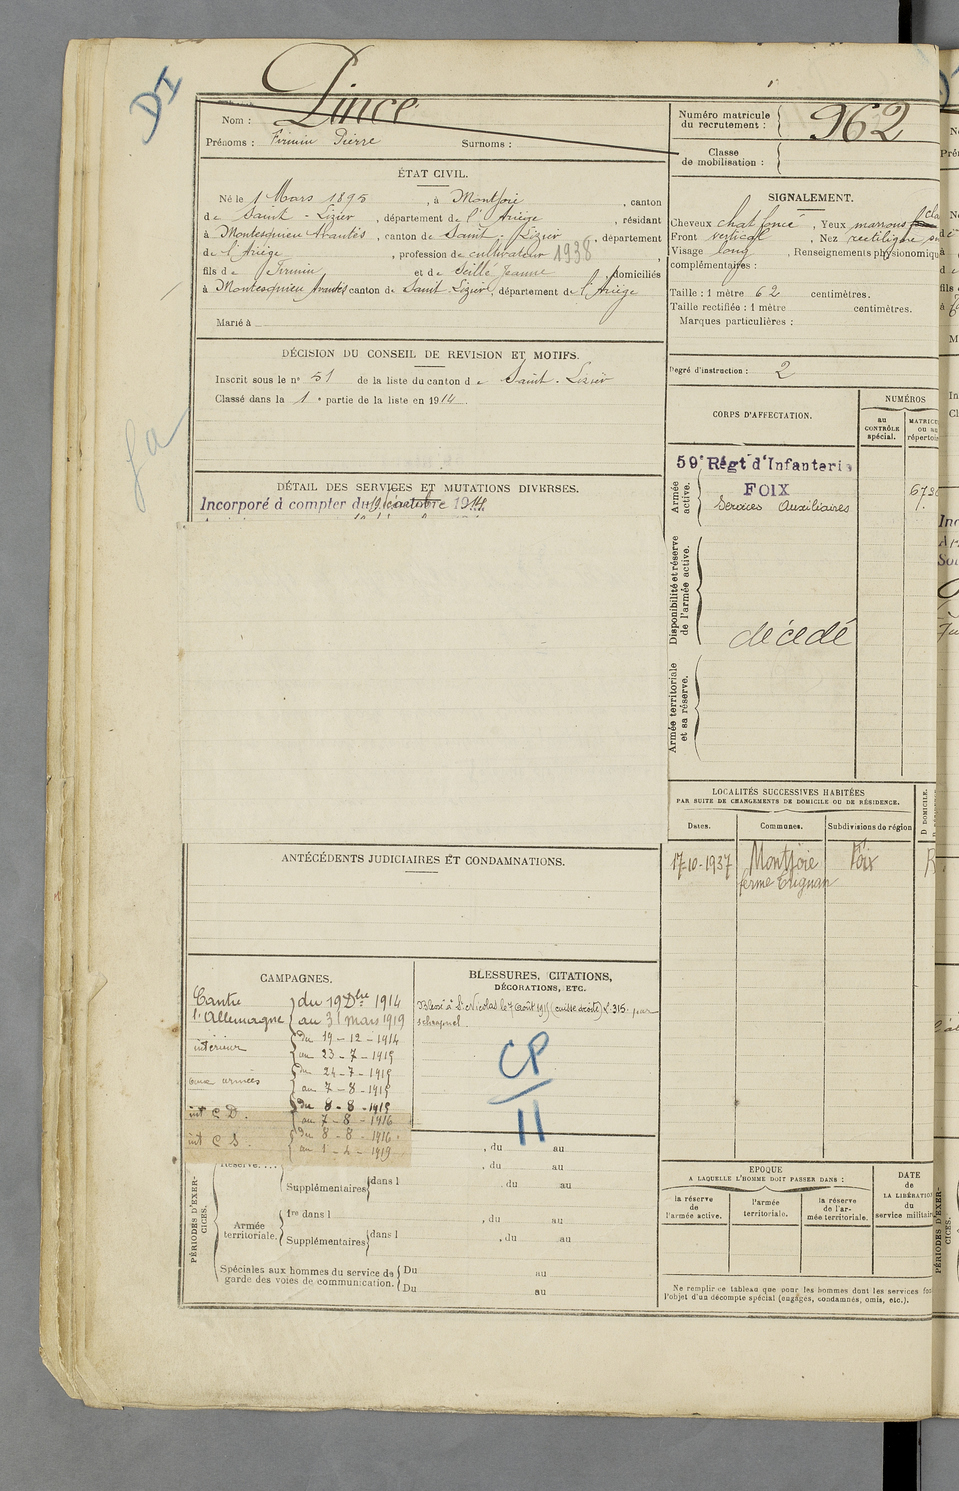 DI
Nom : Pince
Prénoms : Firmin Pierre Surnoms :
Numéro matricule du recrutement : 962
Classe de mobilisation :
ÉTAT CIVIL.
Né le 1 Mars 1895, à Montjoie, canton
de Saint-Lizier, département de l'Ariège, résidant
à Montesquieu Avantès, canton de Saint-Lizier, département
de l'Ariège, profession de cultivateur 1938,
fils de Firmin et de Seillé Jeanne, domiciliés
à Montesquieu Avantès canton de Saint Lizier, département de l'Ariège
Marié à
SIGNALEMENT.
Cheveux chat foncé, Yeux marrons
Front vertical, Nez rectiligne
Visage long, Renseignements physionomiqu
complémentaires :
Taille : 1 mètre 62 centimètres.
Taille rectifiée : 1 mètre centimètres.
Marques particulières :
Degré d'instruction : 2
DÉCISION DU CONSEIL DE REVISION ET MOTIFS.
Inscrit sous le n° 51 de la liste du canton de Saint-Lizier
Classé dans la 1e partie de la liste en 1914.
DÉTAIL DES SERVICES ET MUTATIONS DIVERSES.
Incorporé à compter du 1914.
CORPS D'AFFECTATION.
NUMÉROS
au CONTRÔLE spécial.
MATRICU
ou au
répertoir
Armée active.
59e Régt d'Infanterie
FOIX
Services Auxiliaires
Disponibilité et réserve de l'armée active.
décédé
Armée territoriale et sa réserve.
LOCALITÉS SUCCESSIVES HABITÉES
PAR SUITE DE CHANGEMENTS DE DOMICILE OU DE RÉSIDENCE.
Dates. Communes. Subdivisions de région
D DOMICILE.
17-10-1937 Montjoie Foix R
ferme
ANTÉCÉDENTS JUDICIAIRES ET CONDAMNATIONS.
CAMPAGNES.
Contre du 19 Dbre 1914
l'Allemagne au 31 mars 1919
intérieur du 19-12-1914
au 23-7-1915
aux armées du 24-7-1915
au 7-8-1915
int C D. du 8-8-1915
au 7-8-1916
int C S. du 8-8-1916
au 1-4-1919
BLESSURES, CITATIONS,
DÉCORATIONS, ETC.
Blessé à St Nicolas le 7 août 1915 (cuisse droite)
schrapnel
CP
11
, du au
Réserve.... , du au
Supplémentaires dans l , du au
PÉRIODES D'EXERCICES.
Armée territoriale.
1re dans l , du au
Supplémentaires dans l , du au
Spéciales aux hommes du service de garde des voies de communication.
Du au
Du au
EPOQUE
A LAQUELLE L'HOMME DOIT PASSER DANS :
la réserve de l'armée active.
l'armée territoriale.
la réserve de l'armée territoriale.
DATE
de
LA LIBÉRATION
du
service militair
Ne remplir ce tableau que pour les hommes dont les services fo
l'objet d'un décompte spécial (engagés, condamnés, omis, etc.).